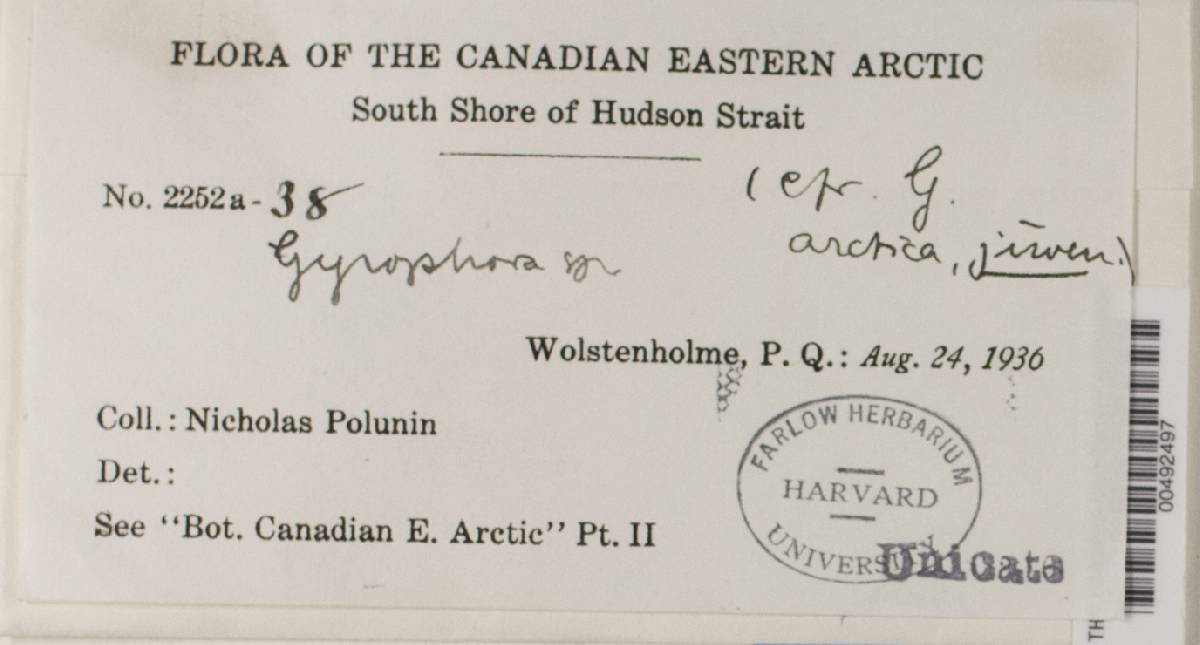 FLORA OF THE CANADIAN EASTERN ARCTIC
South Shore of Hudson Strait
No. 2252a - 38
(cfr. G.
arctica, juven.)
Gyrophora sp
Wolstenholme, P. Q.: Aug. 24, 1936
Coll.: Nicholas Polunin
Det.:
See "Bot. Canadian E. Arctic" Pt. II
FARLOW HERBARIUM
HARVARD
UNIVERSITY
Unicate
00492497
TH